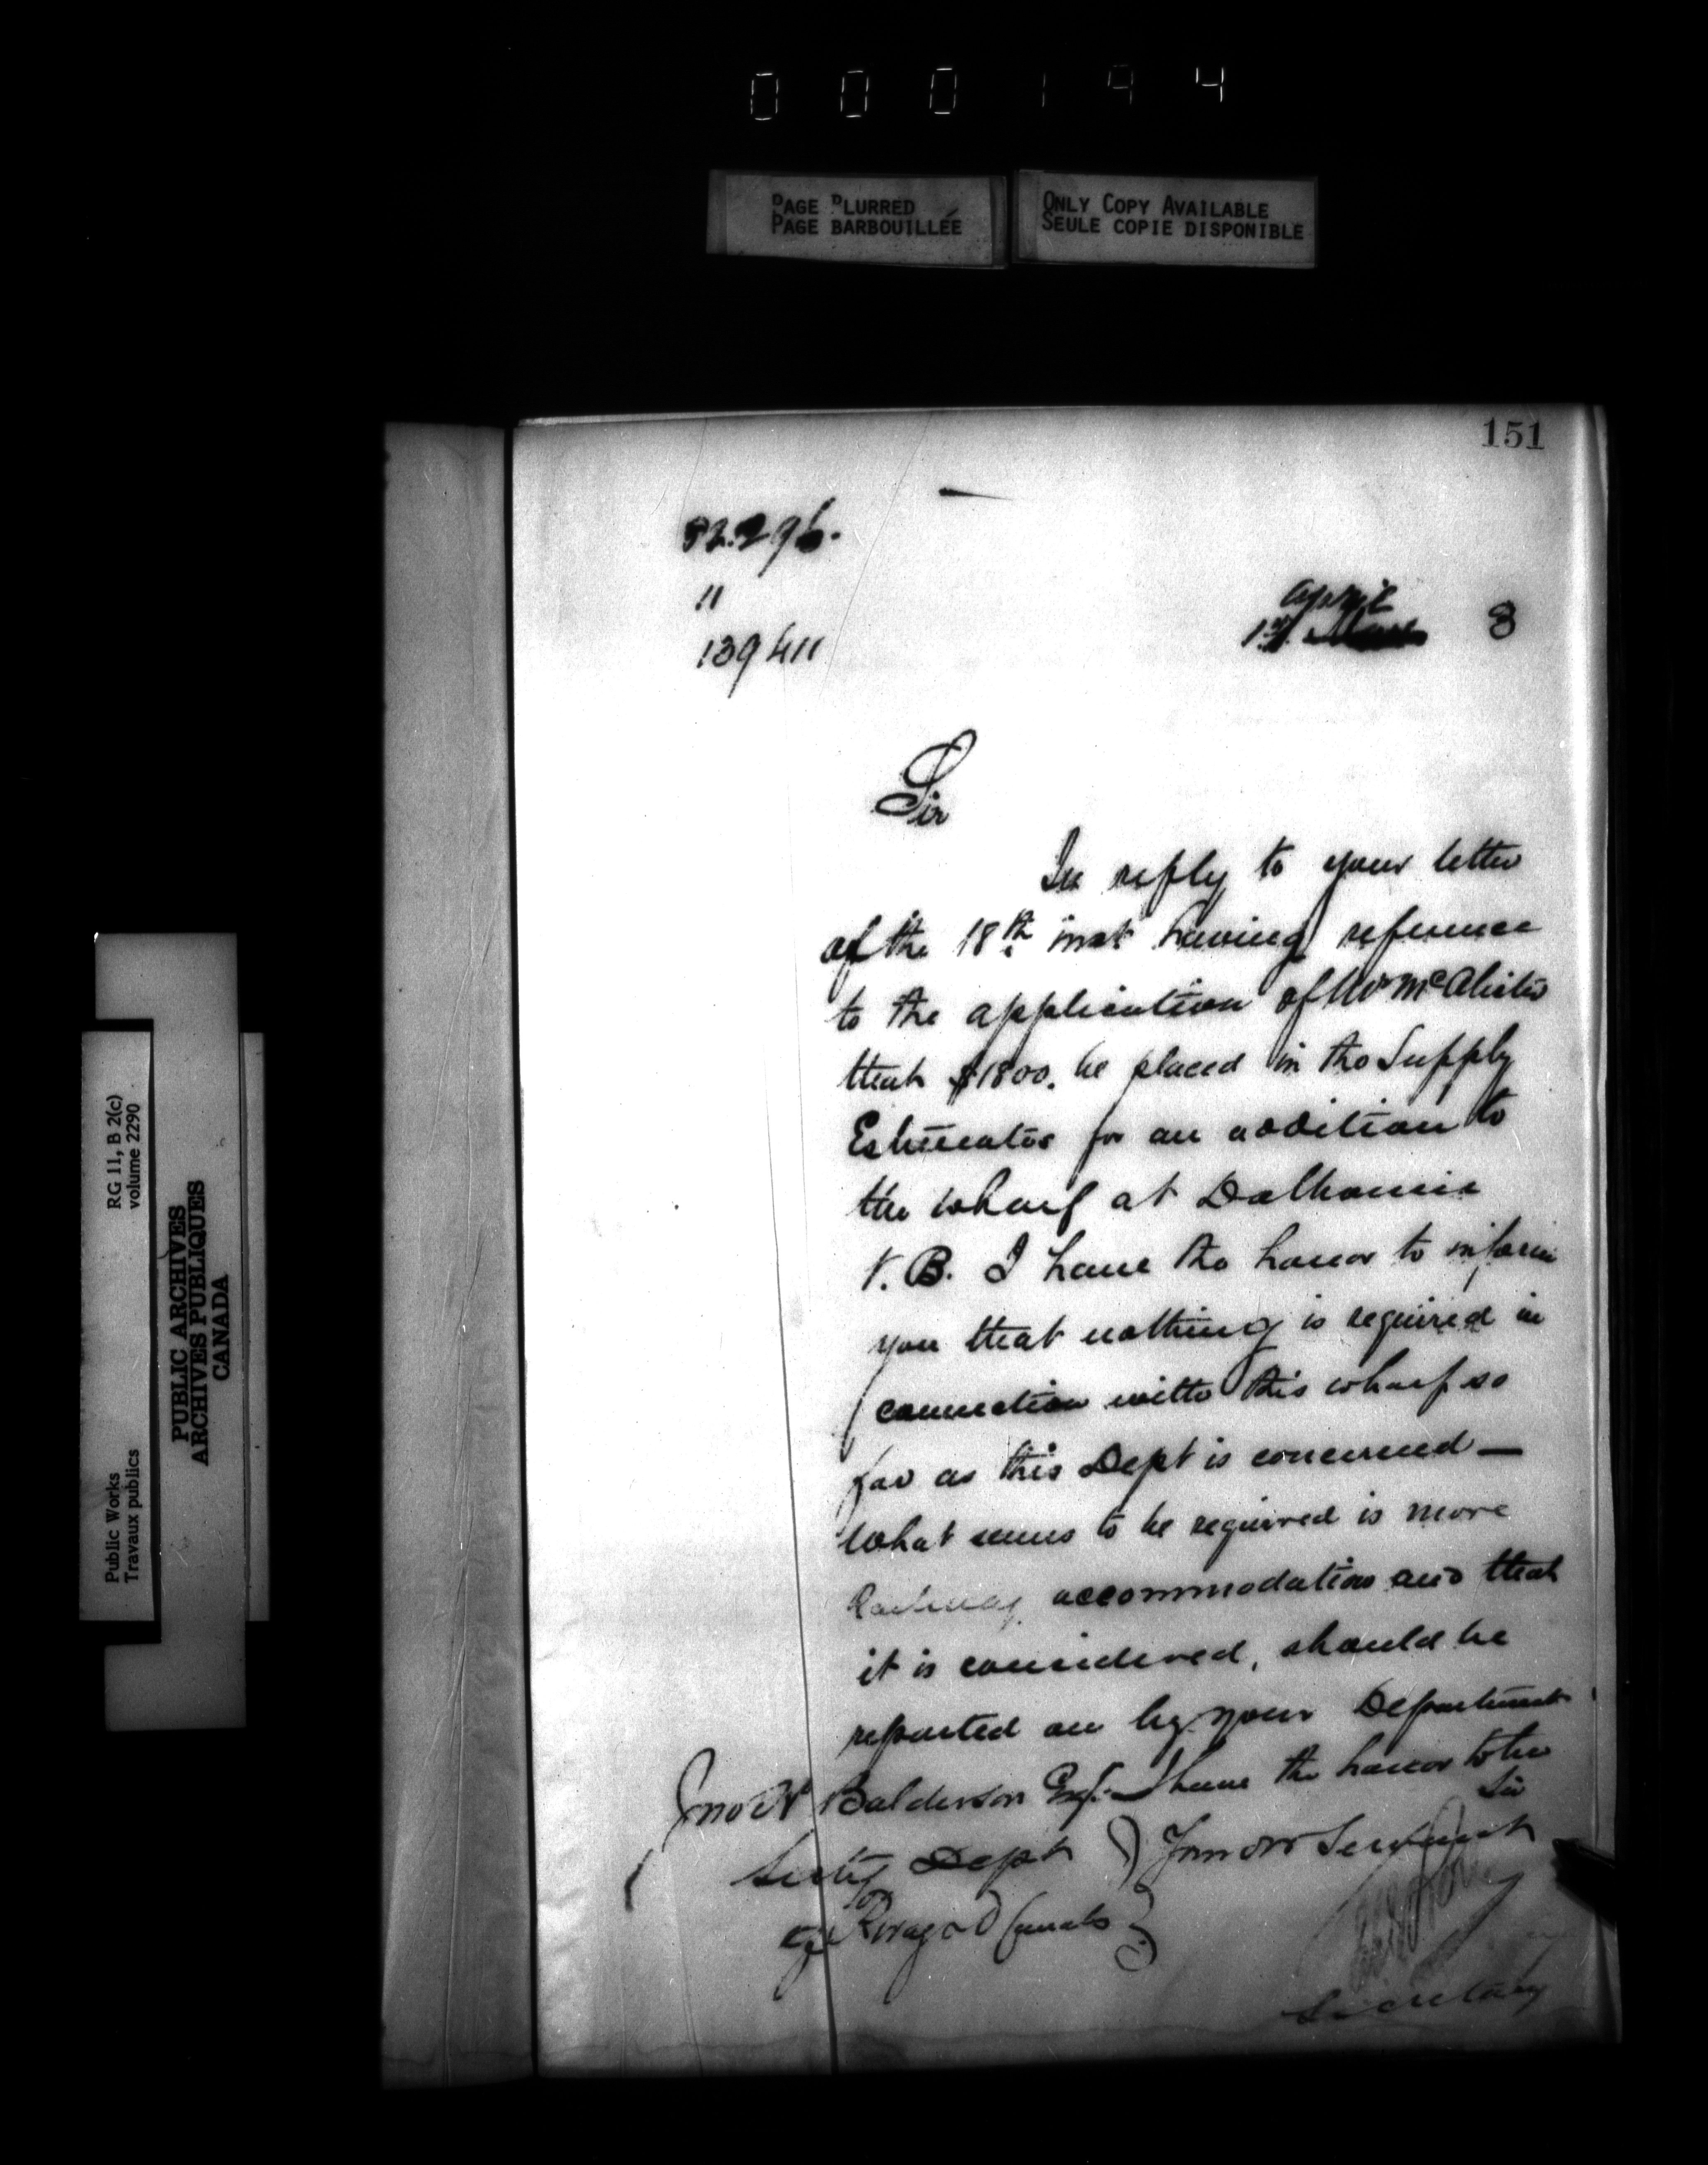 000194
PAGE BLURRED
PAGE BARBOUILLÉE
ONLY COPY AVAILABLE
SEULE COPIE DISPONIBLE
151
82.296.
11
139411
April
1st 3
Sir
In reply to your letter
of the 18th inst having reference
to the application of Mr McAlister
that $1800. be placed in the Supply
Estimates for an addition to
the wharf at Dalhousie
N.B. I have the honor to inform
you that nothing is required in
connection with this wharf so
far as this Dept is concerned —
What seems to be required is more
Railway accommodation and that
it is considered, should be
reported on by your Department
I have the honor to be
Sir
Balderson Esq.
Secty Dept
of Rways & Canals
Your Ob Servant
Secretary
RG 11, B 2(c)
volume 2290
Public Works
Travaux publics
PUBLIC ARCHIVES
ARCHIVES PUBLIQUES
CANADA